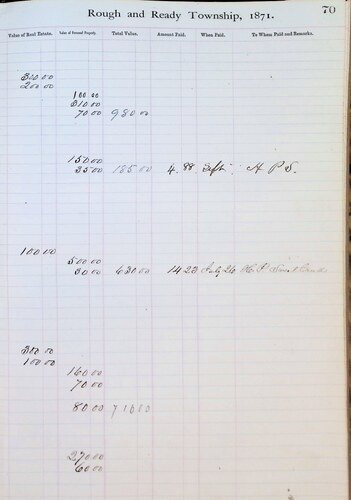 Rough and Ready Township, 1871.
70
Value of Real Estate. Value of Personal Property. Total Value. Amount Paid. When Paid. To Whom Paid and Remarks.
300 00
200 00
100 00
310 00
70 00 980 00
150 00
35 00 185 00 4.88 Sept. H P S.
100 00
500 00
30 00 630 00 14 23 July 26
300 00
100 00
160 00
70 00
80 00 710 00
270 00
60 00